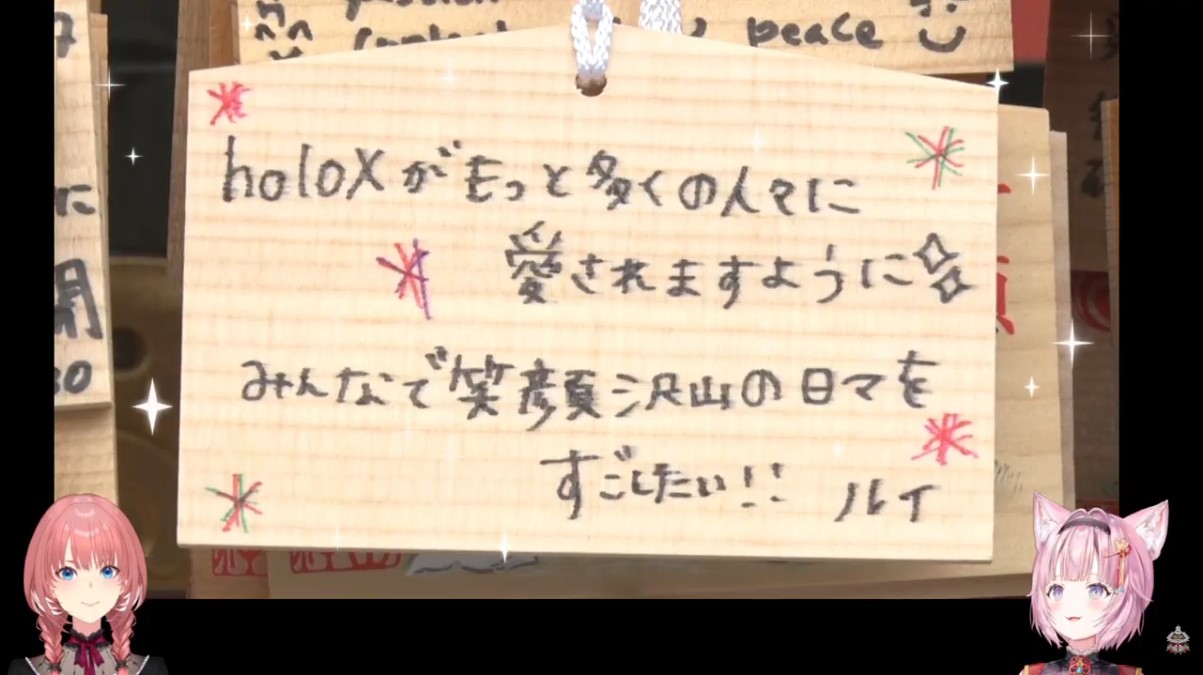 peace
holoXがもっと多くの人々に
愛されますように
みんなで笑顔沢山の日々を
すごしたい!!
ルイ
に
開
30
願